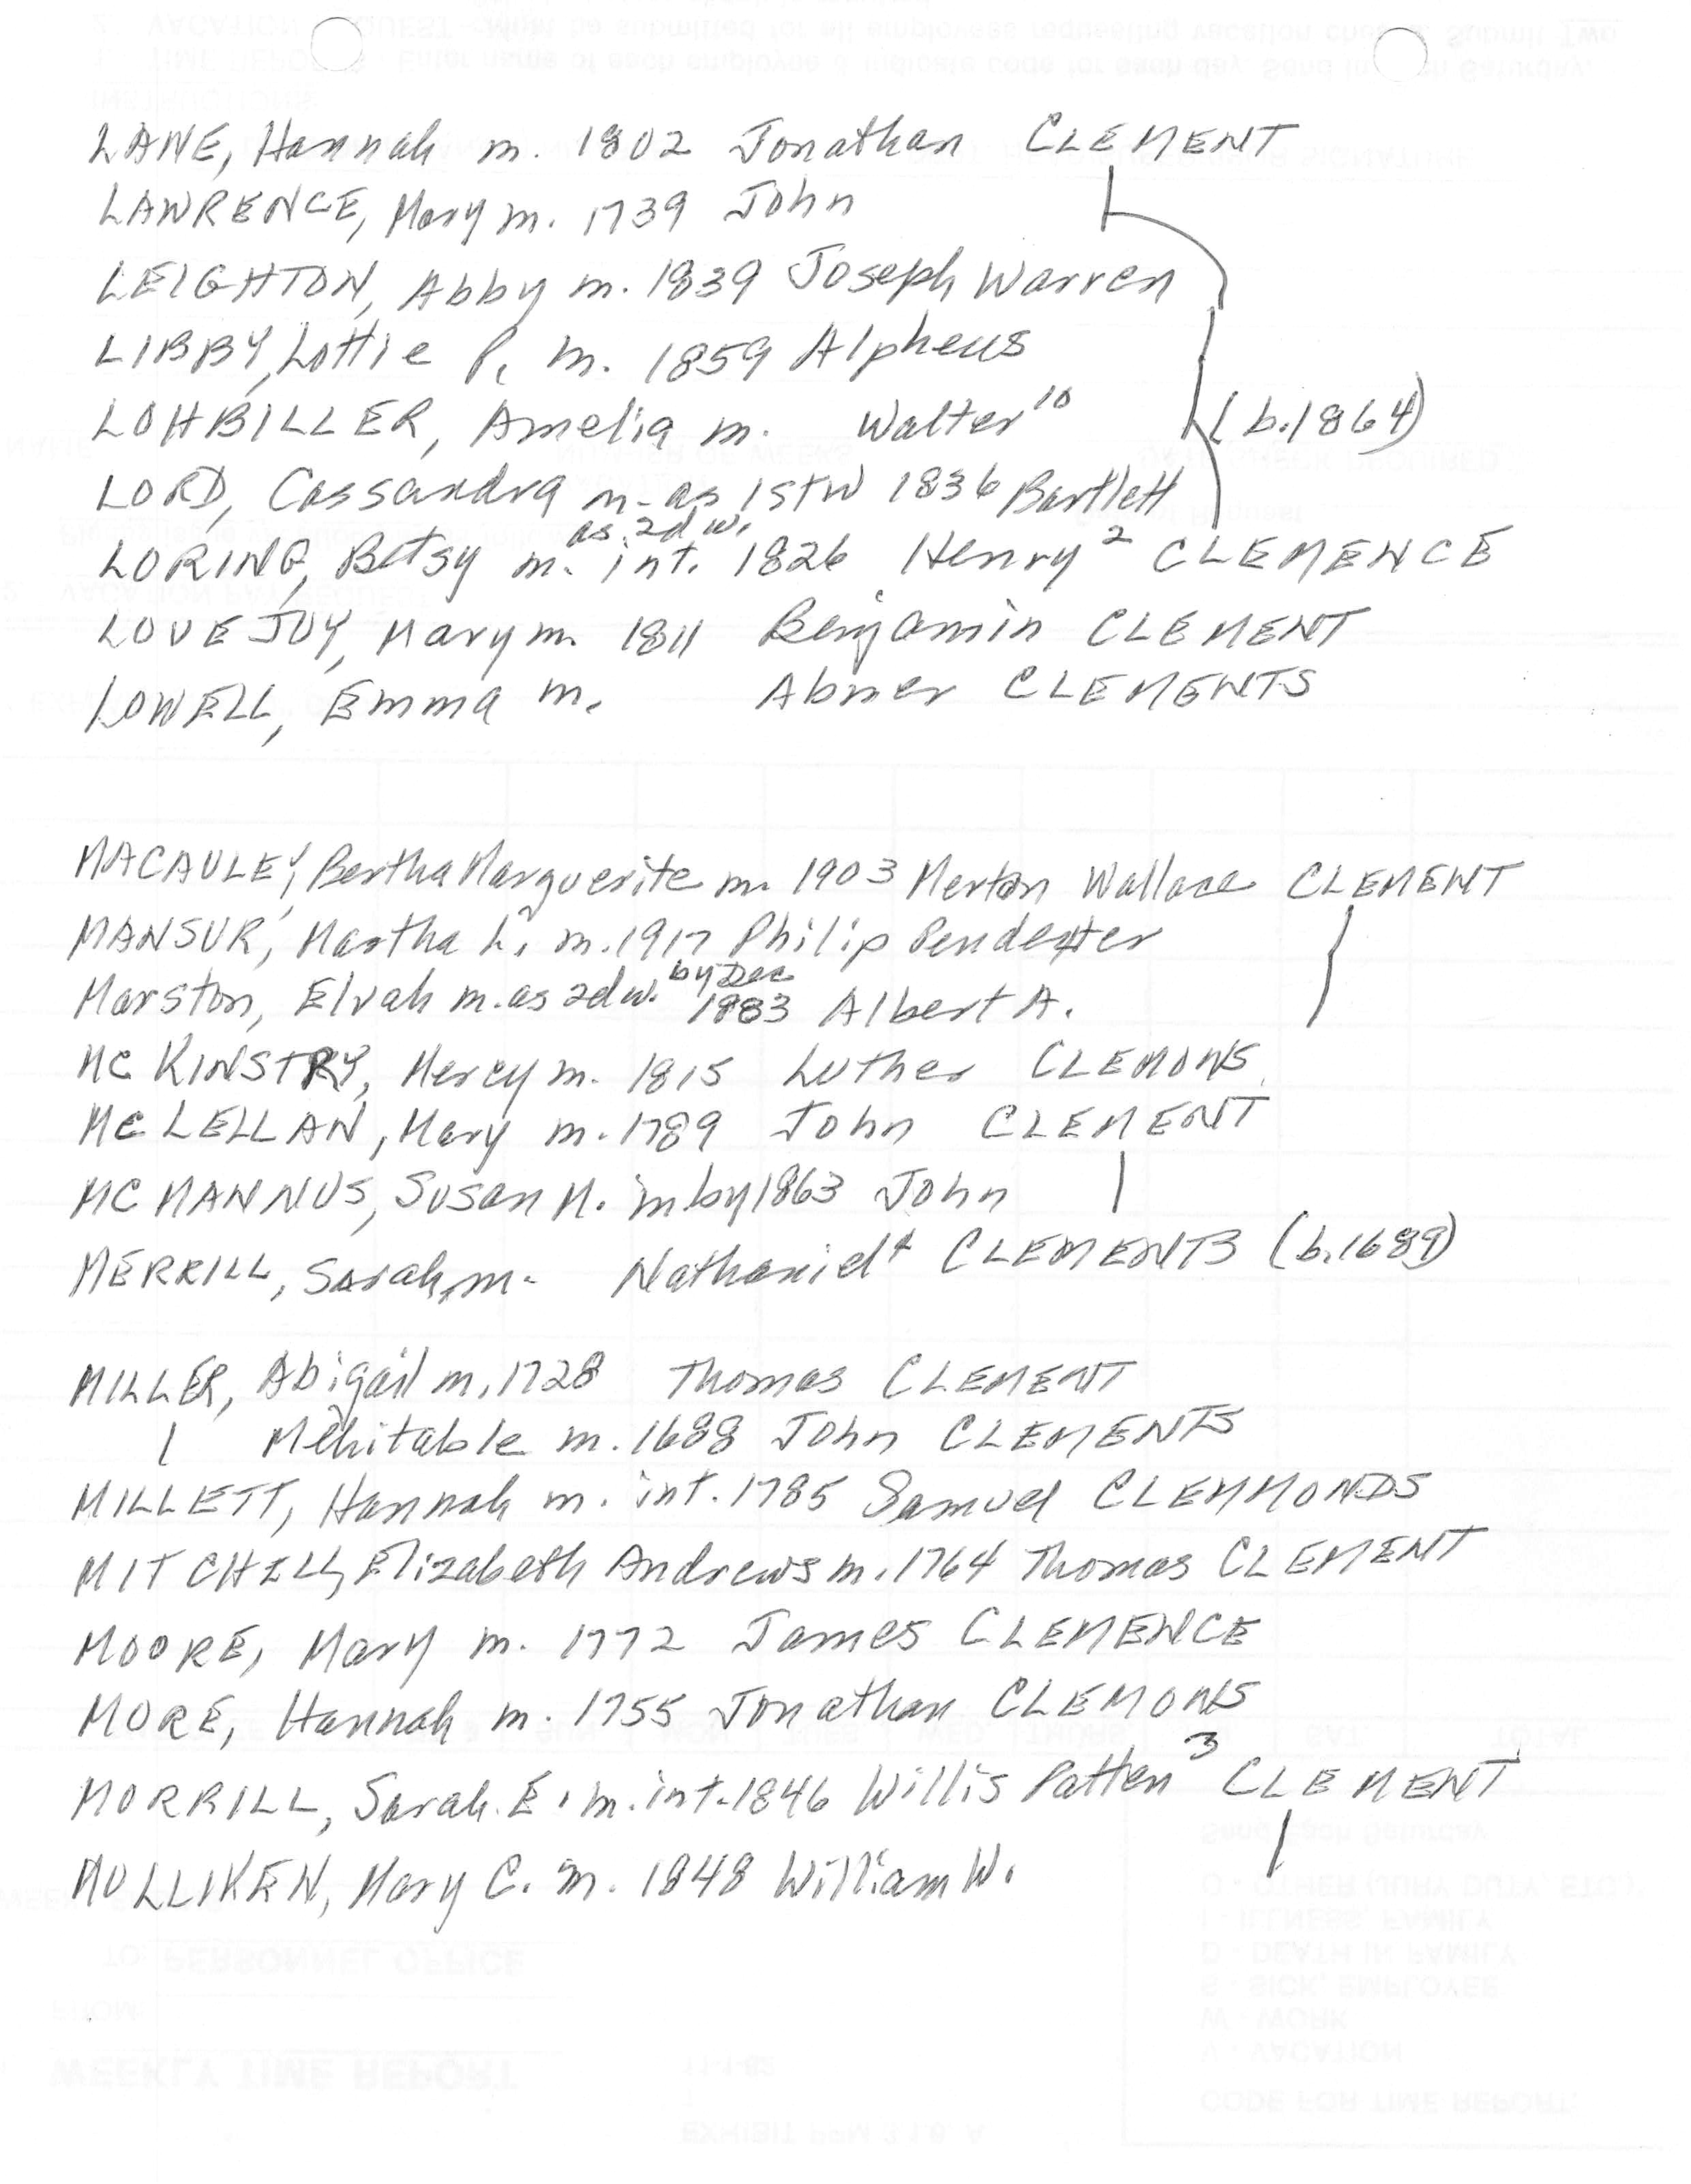 LANE, Hannah m. 1802 Jonathan CLEMENT
LAWRENCE, Mary m. 1739 John
LEIGHTON, Abby m. 1839 Joseph Warren
LIBBY, Lottie P. m. 1859 Alpheus
LOHBILLER, Amelia m. Walter 10 (b.1864)
LORD, Cassandra m. as 1st W 1836 Bartlett
as 2d w.
LORING, Betsy m. int. 1826 Henry 2 CLEMENCE
LOVEJOY, Mary m. 1811 Benjamin CLEMENT
LOWELL, Emma m. Abner CLEMENTS
MACAULEY, Bertha Marguerite m. 1903 Merton Wallace CLEMENT
MANSUR, Martha L. m. 1917 Philip Pendexter
by Dec
Marston, Elvah m. as 2d w. 1883 Albert A.
MC KINSTRY, Mercy m. 1815 Luther CLEMONS
Mc LELLAN, Mary m. 1789 John CLEMENT
MC MANNUS, Susan M. m by 1863 John
MERRILL, Sarah, m. Nathaniel 4 CLEMENTS (b.1689)
MILLER, Abigail m. 1728 Thomas CLEMENT
Mehitable m. 1688 John CLEMENTS
MILLETT, Hannah m. int. 1785 Samuel CLEMMONDS
MITCHILL, Elizabeth Andrews m. 1764 Thomas CLEMENT
MOORE, Mary m. 1772 James CLEMENCE
MORE, Hannah m. 1755 Jonathan CLEMONS
MORRILL, Sarah E. m. int. 1846 Willis Patten 3 CLEMENT
MULLIKEN, Mary C. m. 1848 William W.